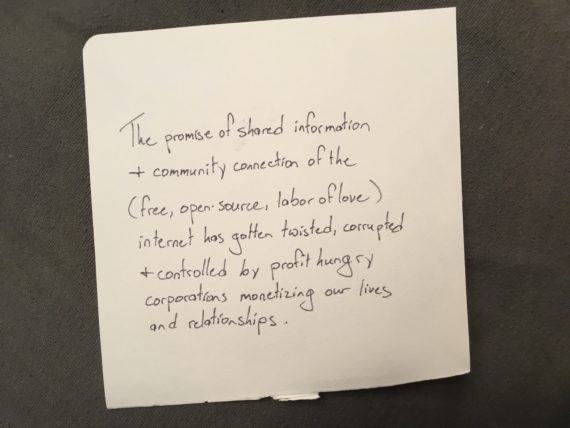 The promise of shared information
+ community connection of the
(free, open-source, labor of love)
internet has gotten twisted, corrupted
+ controlled by profit hungry
corporations monetizing our lives
and relationships.